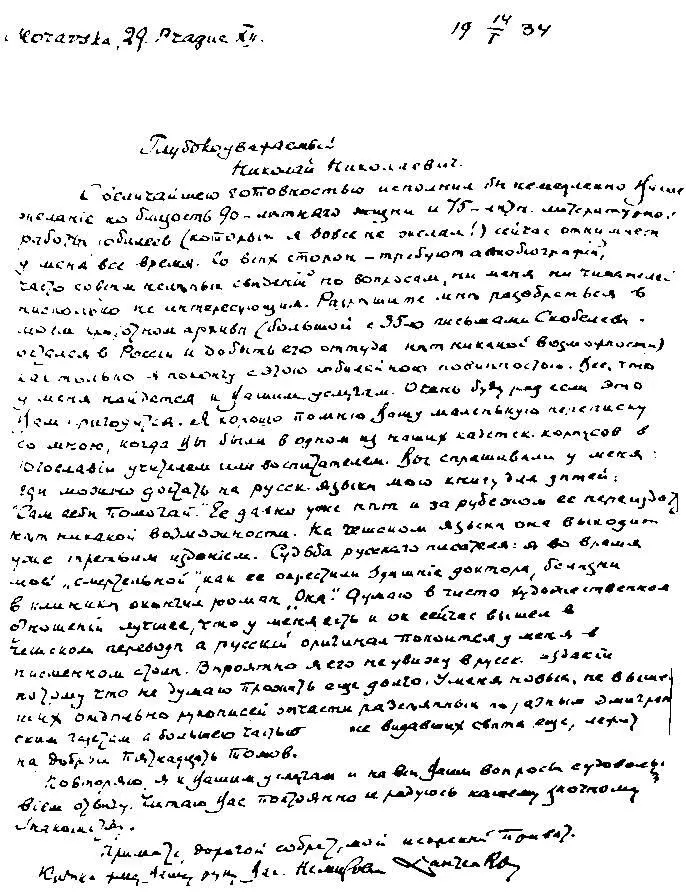 Moravska, 29. Prague XII.
19 14/I 34
Глубокоуважаемый
Николай Николаевич.
С величайшею готовностью исполнил бы немедленно Ваше
желание но близость 90-лѣтняго жизни и 75-лѣтн. литературной
работы юбилеев (которых я вовсе не желал!) сейчас отнимает
у меня все время. Со всѣх сторон – требуют автобіографій,
часто совсѣм нелѣпых свѣдѣній по вопросам, ни меня ни читателей
нисколько не интересующим. Разрѣшите мнѣ разобраться в
моем архивѣ (большой с 35-ю письмами Скобелева
остался в Россіи и добыть его оттуда нѣт никакой возможности)
как только я покончу с этою юбилейною повинностью. Все, что
у меня найдется к Вашим услугам. Очень буду рад если это
Вам пригодится. Я хорошо помню Вашу маленькую переписку
со мною, когда Вы были в одном из наших кадетск. корпусов в
Югославіи учителем или воспитателем. Вы спрашивали у меня:
гдѣ можно достать на русск. языкѣ мою книгу для дѣтей:
"Сам себѣ помогай." Ее давно уже нѣт и за рубежом ее переиздать
нѣт никакой возможности. На чешском языкѣ она выходит
уже третьим изданіем. Судьба русскаго писателя: я во время
моей "смертельной", как ее окрестили здѣшніе доктора, болѣзни
в клиникѣ окончил роман "Она." Думаю в чисто художественном
отношеніи лучшее, что у меня есть и он сейчас вышел в
Чешском переводѣ а русскій оригинал покоится у меня в
письменном столѣ. Вѣроятно я его не увижу в русск. изданіи
потому что не думаю прожить еще долго. У меня новых, не вышед
ших отдѣльно рукописей отчасти разсѣянных по разным эмигрант
ским газетам а большею частью не видавших свѣта еще, лежит
на добрых пятнадцать томов.
Повторяю, я к Вашим услугам и на всѣ Ваши вопросы с удоволь
віем отвѣчу. Читаю Вас постоянно и радуюсь нашему заочному
знакомству.
Примите, дорогой собрат, мой искренній привѣт.
Крѣпко жму Вашу руку, Вас. Немирович Данченко